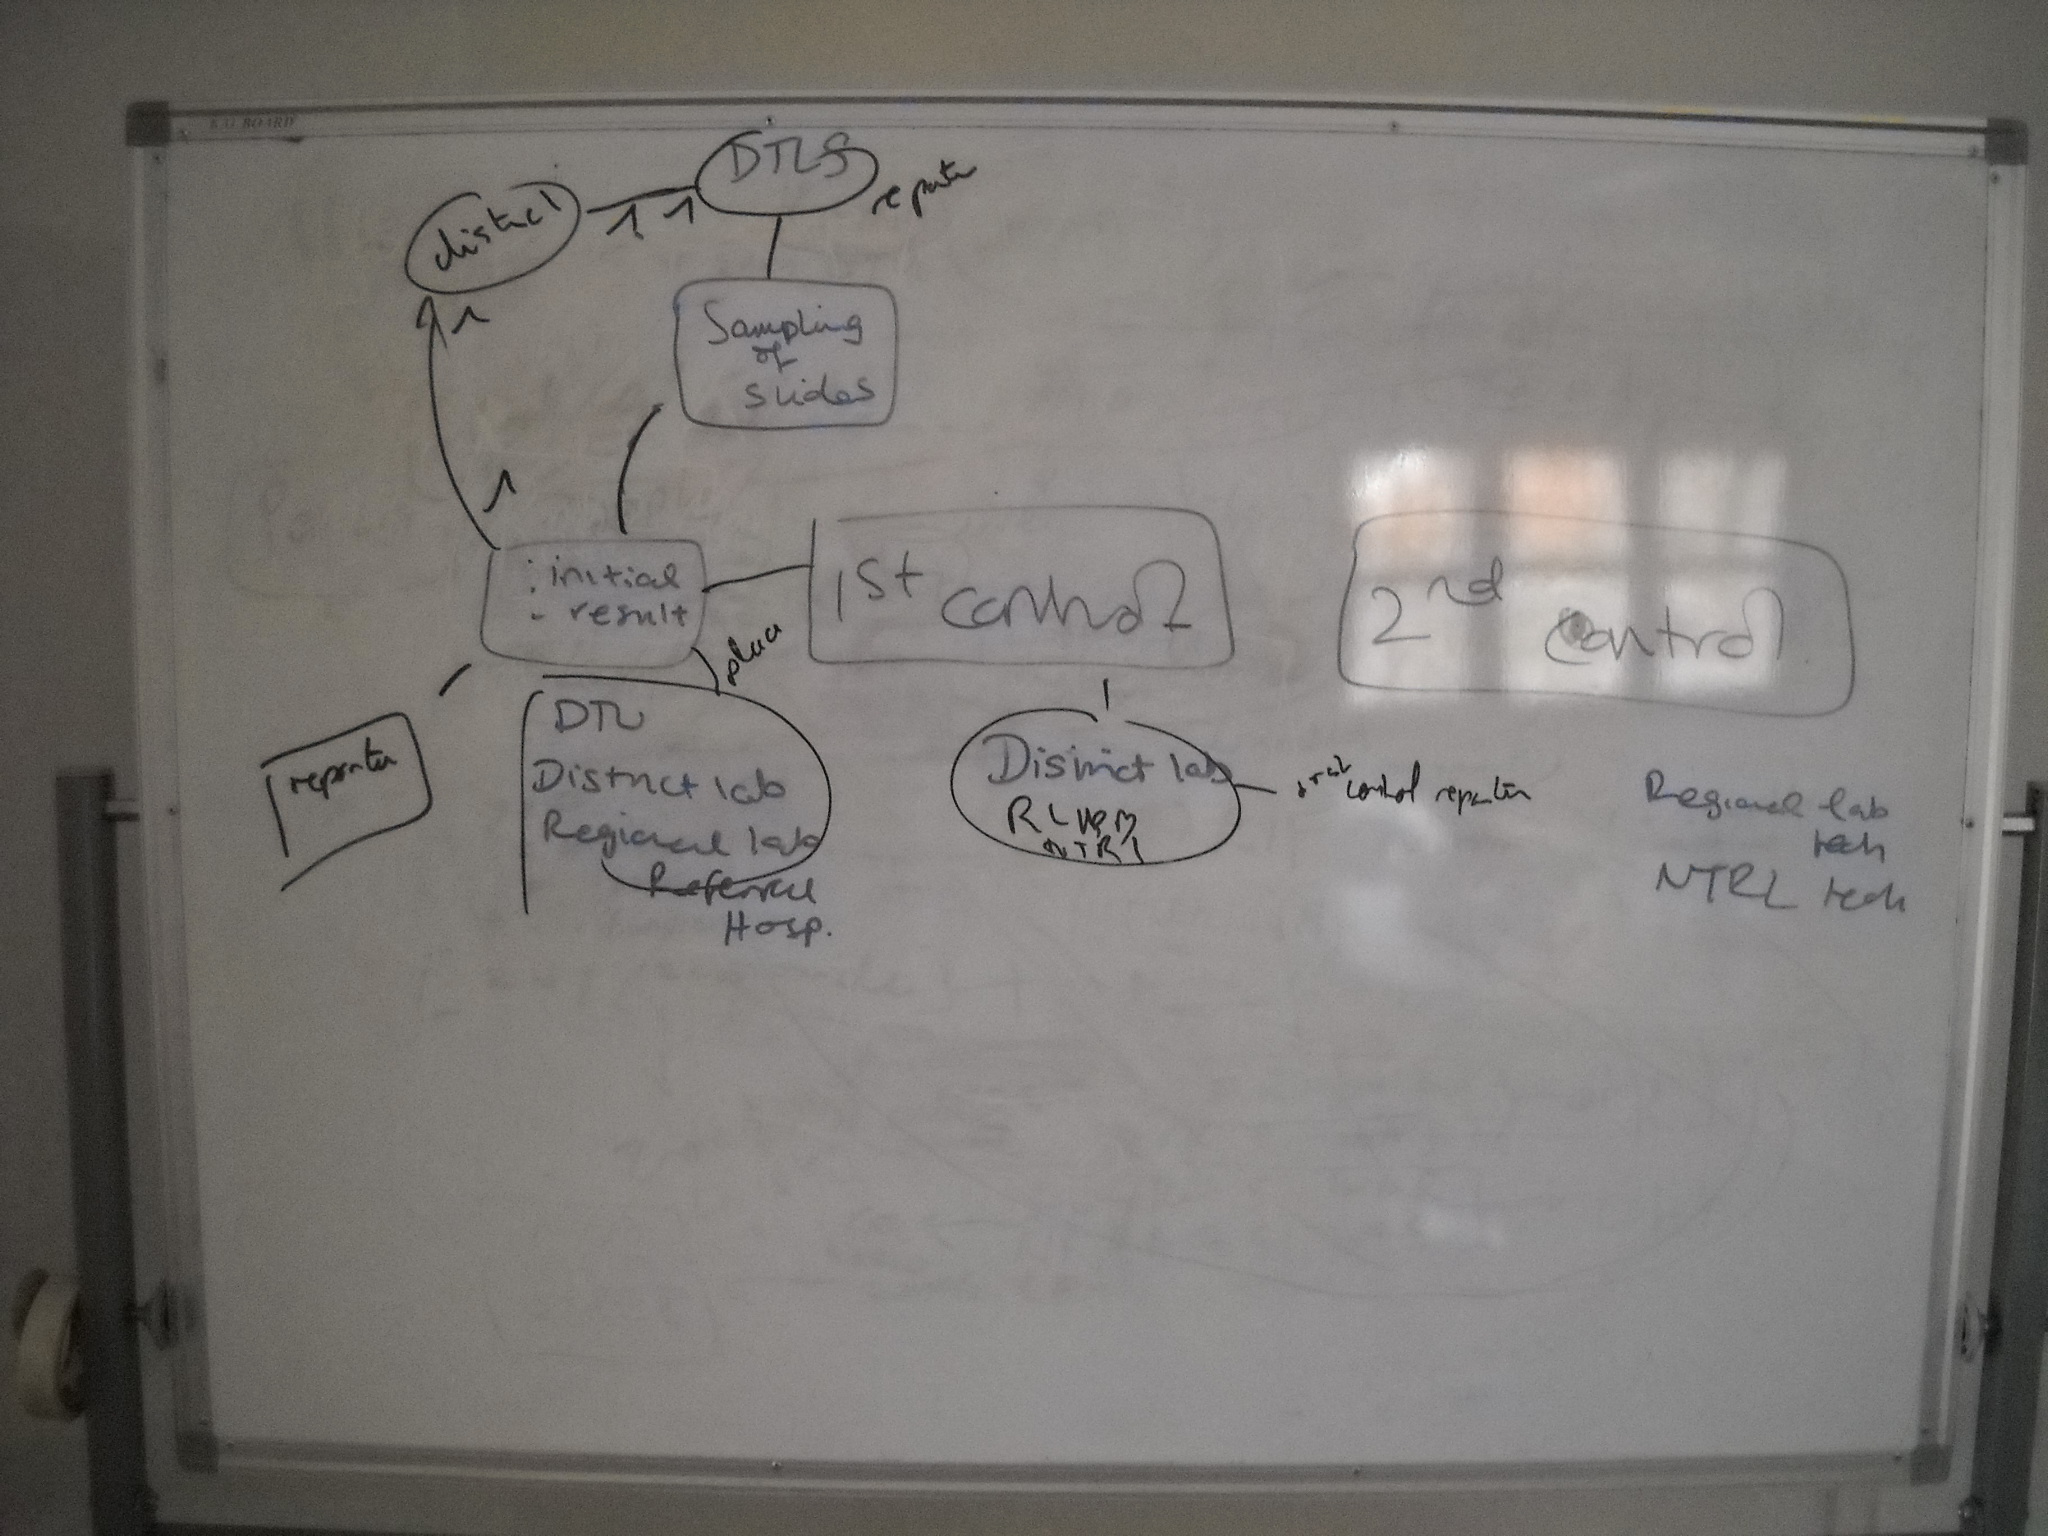 DTLS
reporter
district
Sampling
of
slides
initial
result
1st control
2nd control
place
reporter
DTU
District lab
Regional lab
Referral
Hosp.
District lab
control reporter
Regional lab
tech
NTRL tech